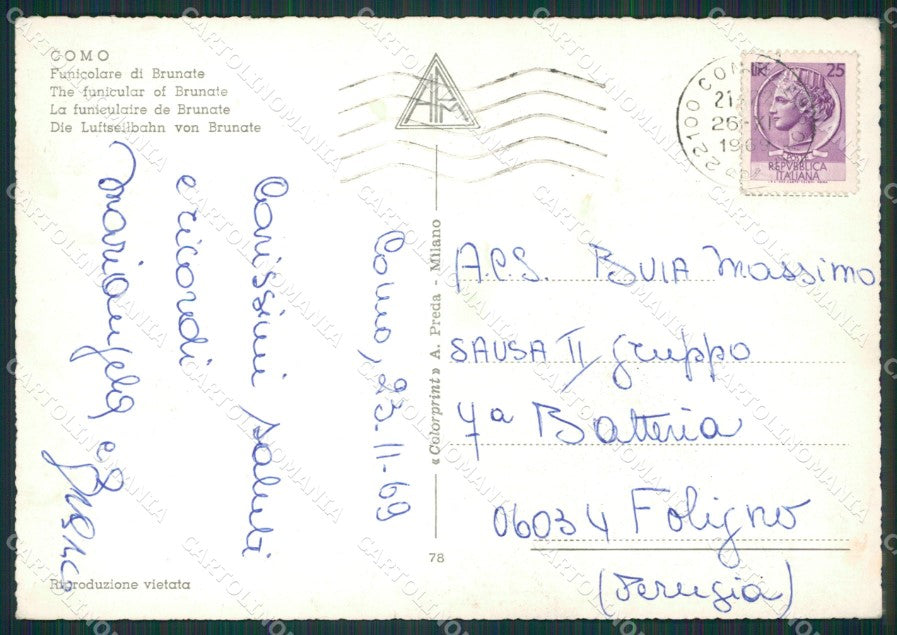 COMO
Funicolare di Brunate
The funicular of Brunate
La funiculaire de Brunate
Die Luftseilbahn von Brunate
Como, 23.11-69
Carissimi saluti
e ricordi
Mariangela e
Riproduzione vietata
«Colorprint» A. Preda - Milano
78
22100 COMO
21
26-XI
1969
25
REPVBBLICA
ITALIANA
A.C.S. BUIA Massimo
SAUSA II gruppo
4ª Batteria
06034 Foligno
(Perugia)
CARTOLINOMANIA